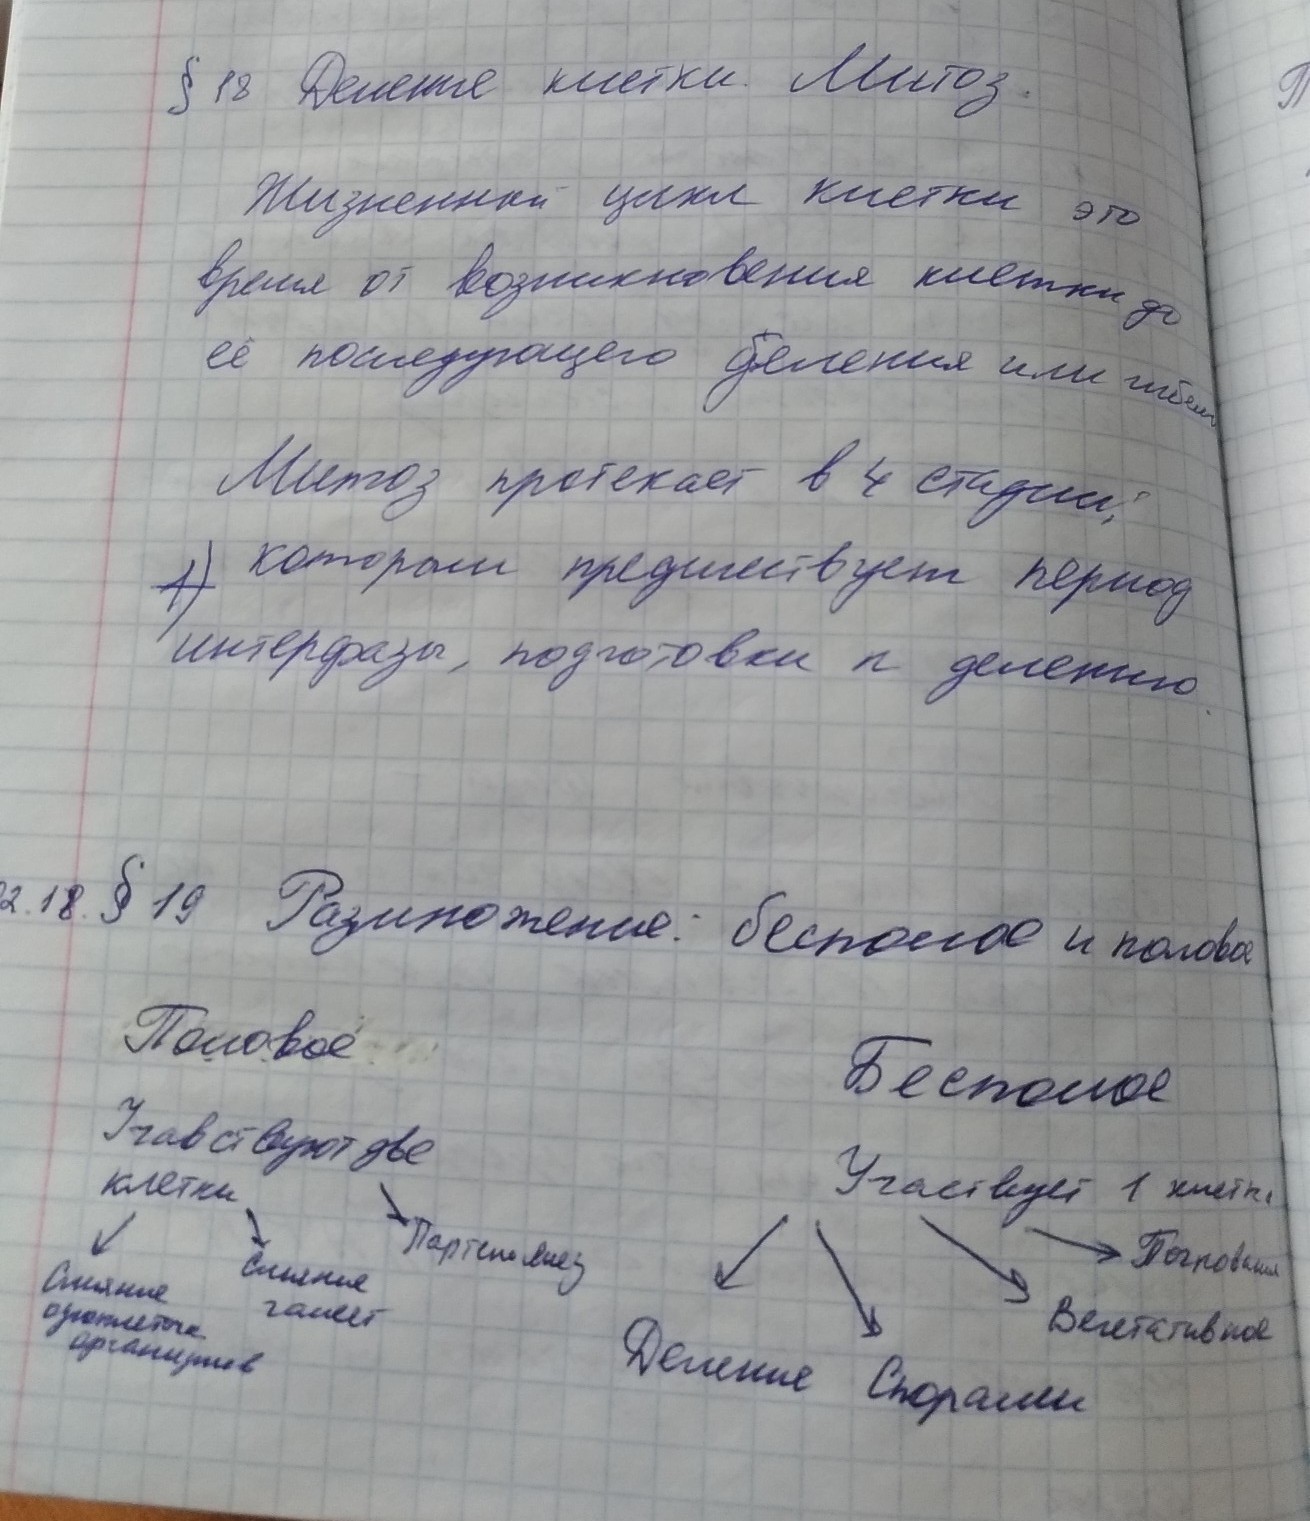 § 18 Деление клетки. Митоз.
Жизненный цикл клетки это
время от возникновения клетки до
её последующего деления или гибели
Митоз протекает в 4 стадии,
1) которым предшествует период
интерфазы, подготовки к делению.
2.18. § 19 Размножение: бесполое и половое
Половое
Учавствуют две
клетки
Слияние
одноклеточн.
организмов
Слияние
гамет
Партеногенез
Бесполое
Участвует 1 клетка
Деление
Спорами
Вегетативное
Почкование